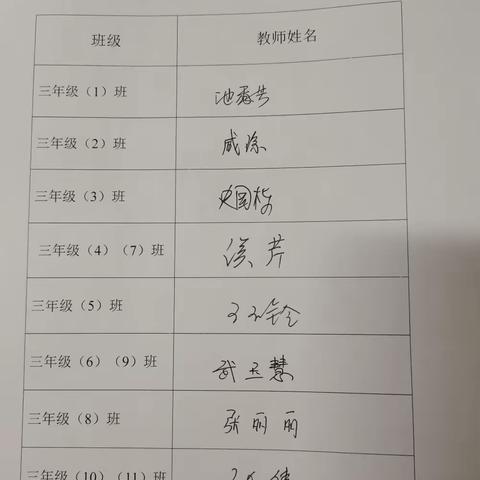 班级 教师姓名
三年级（1）班
三年级（2）班 咸琼
三年级（3）班
三年级（4）（7）班 侯芹
三年级（5）班
三年级（6）（9）班 武玉慧
三年级（8）班 张丽丽
三年级（10）（11）班